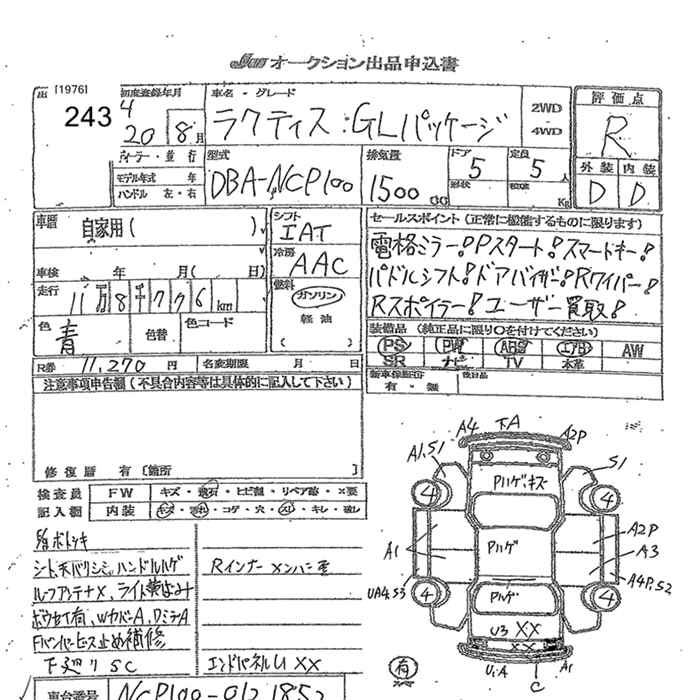 JAA オークション出品申込書
[1976]
243
初度登録年月
4
20 8 月
車名・グレード
ラクティス:GLパッケージ
2WD
4WD
評価点
R
外装 内装
D D
ディーラー・並行
モデル年式 年
ハンドル 左・右
型式
DBA-NCP100
排気量
1500 CC
ドア
5
定員
5 人
形状
積載
Kg
車歴
自家用( )
シフト
IAT
セールスポイント(正常に機能するものに限ります)
電格ミラー!Pスタート!スマートキー!
パドルシフト!ドアバイザー!Rワイパー!
Rスポイラー!ユーザー買取!
車検 年 月(日)
冷房
AAC
走行
11万8千776km
燃料
ガソリン
軽油
( )
色
青
色替
色コード
装備品(純正品に限り○を付けてください)
PS PW ABS エアB AW
SR ナビ TV 本革
R券 11,270 円
名変期限 月 日
新車保証書
有・無
後日品
注意事項申告欄(不具合内容等は具体的に記入して下さい)
修復歴 有〔箇所 〕
検査員
記入欄
FW キズ・飛石・ヒビ割・リペア跡・×要
内装 キズ・汚れ・コゲ・穴・スレ・キレ・破レ
シート、天バリシミ、ハンドルハゲ
Rインナー メンバー歪
ルーフアンテナX、ライト黄ばみ
Fバンパービス止め補修
下廻りSC
エンドパネルU XX
車台番号
NCP100-0121852
A4 下A A2P
A1,S1
S1
Pハゲ・キズ
4 4
A1
Pハゲ
A2P
A3
UA4,S3
A4P,S2
4 4
Pハゲ
U3 XX
XX
有
U1A
C
A1